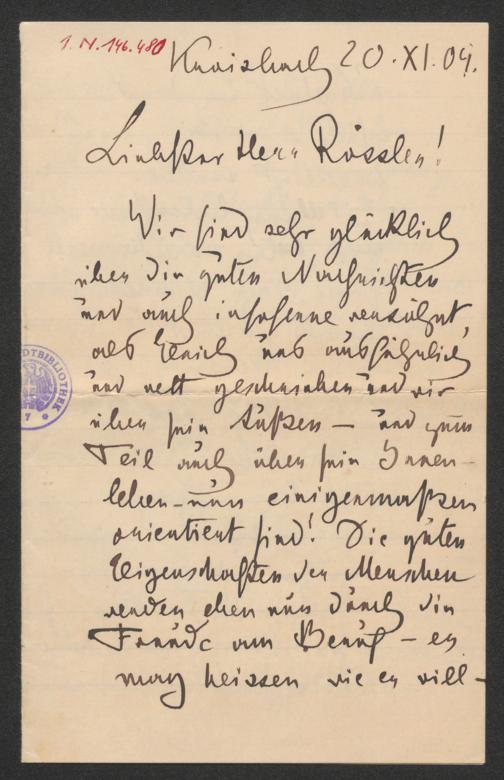 I.N. 146.480
Knoisbach 20.XI.09.
Liebster Herr Rössler!
Wir sind sehr glücklich
über die guten Nachrichten
und auch insoferne versöhnt,
als Erich uns ausführlich
und nett geschrieben und wir
über sein Äußen – und zum
Teil auch über sein Innen-
leben – nun einigermaßen
orientiert sind! Die guten
Eigenschaften der Menschen
werden eben nur durch die
Freude am Beruf – er
mag heissen wie er will –
DTBIBLIOTHEK